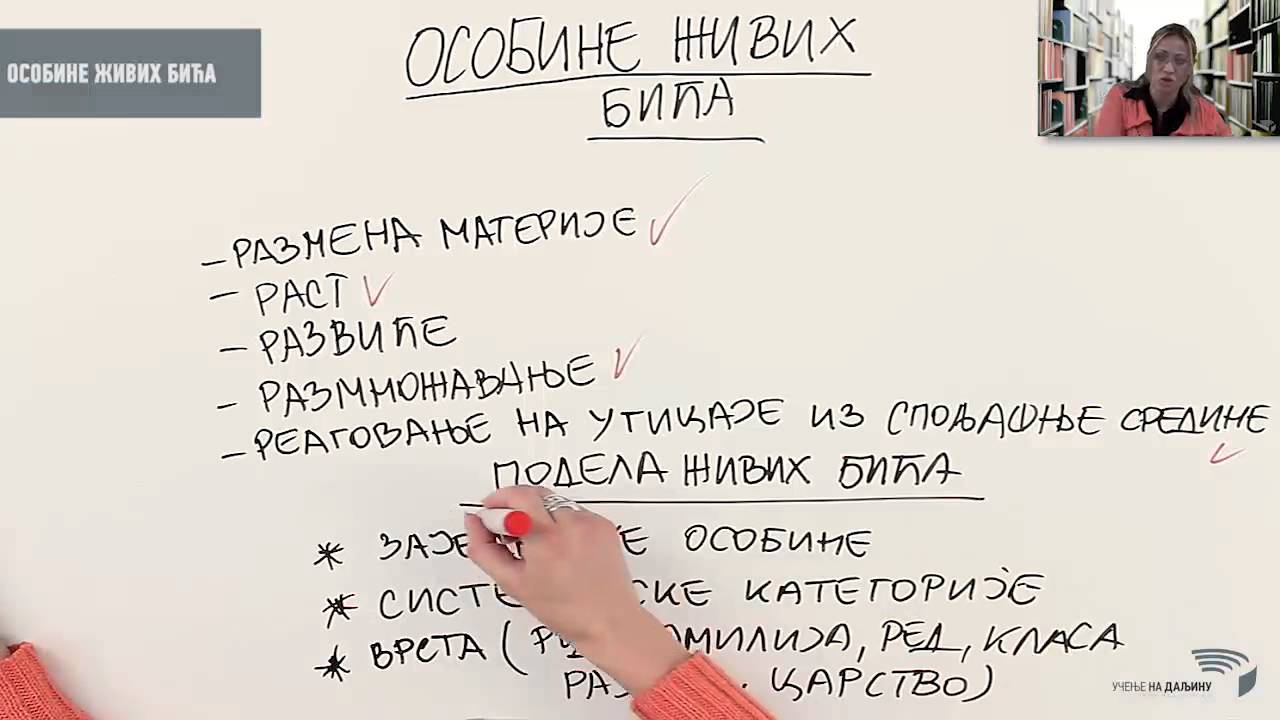 ОСОБИНЕ ЖИВИХ БИЋА
ОСОБИНЕ ЖИВИХ
БИЋА
– РАЗМЕНА МАТЕРИЈЕ ✓
– РАСТ ✓
– РАЗВИЋЕ
– РАЗМНОЖАВАЊЕ ✓
– РЕАГОВАЊЕ НА УТИЦАЈЕ ИЗ СПОЉАШЊЕ СРЕДИНЕ ✓
ПОДЕЛА ЖИВИХ БИЋА
* ОСОБИНЕ
* КАТЕГОРИЈЕ
* ВРСТА ( РЕД, КЛАСА
ЦАРСТВО)
УЧЕЊЕ НА ДАЉИНУ